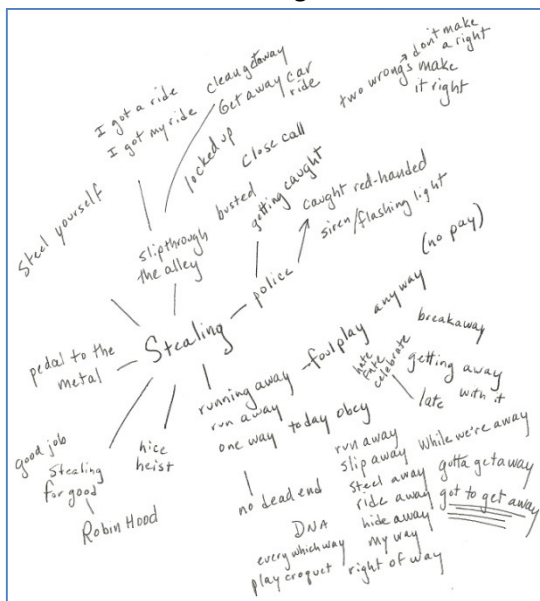 don't make
a right
two wrongs make
it right
I got a ride
I got my ride
clean getaway
Getaway car
ride
locked up
Close call
Steel yourself
slip through
the alley
busted
getting caught
caught red-handed
siren/flashing light
police
(no pay)
Stealing
pedal to the
metal
foul play
anyway
breakaway
hate
fate
celebrate
getting away
with it
late
running away
run away
one way
today
obey
good job
Stealing
for good
Robin Hood
nice
heist
no dead end
run away
slip away
steel away
ride away
hide away
my way
right of way
While we're away
gotta getaway
got to get away
DNA
every which way
play croquet